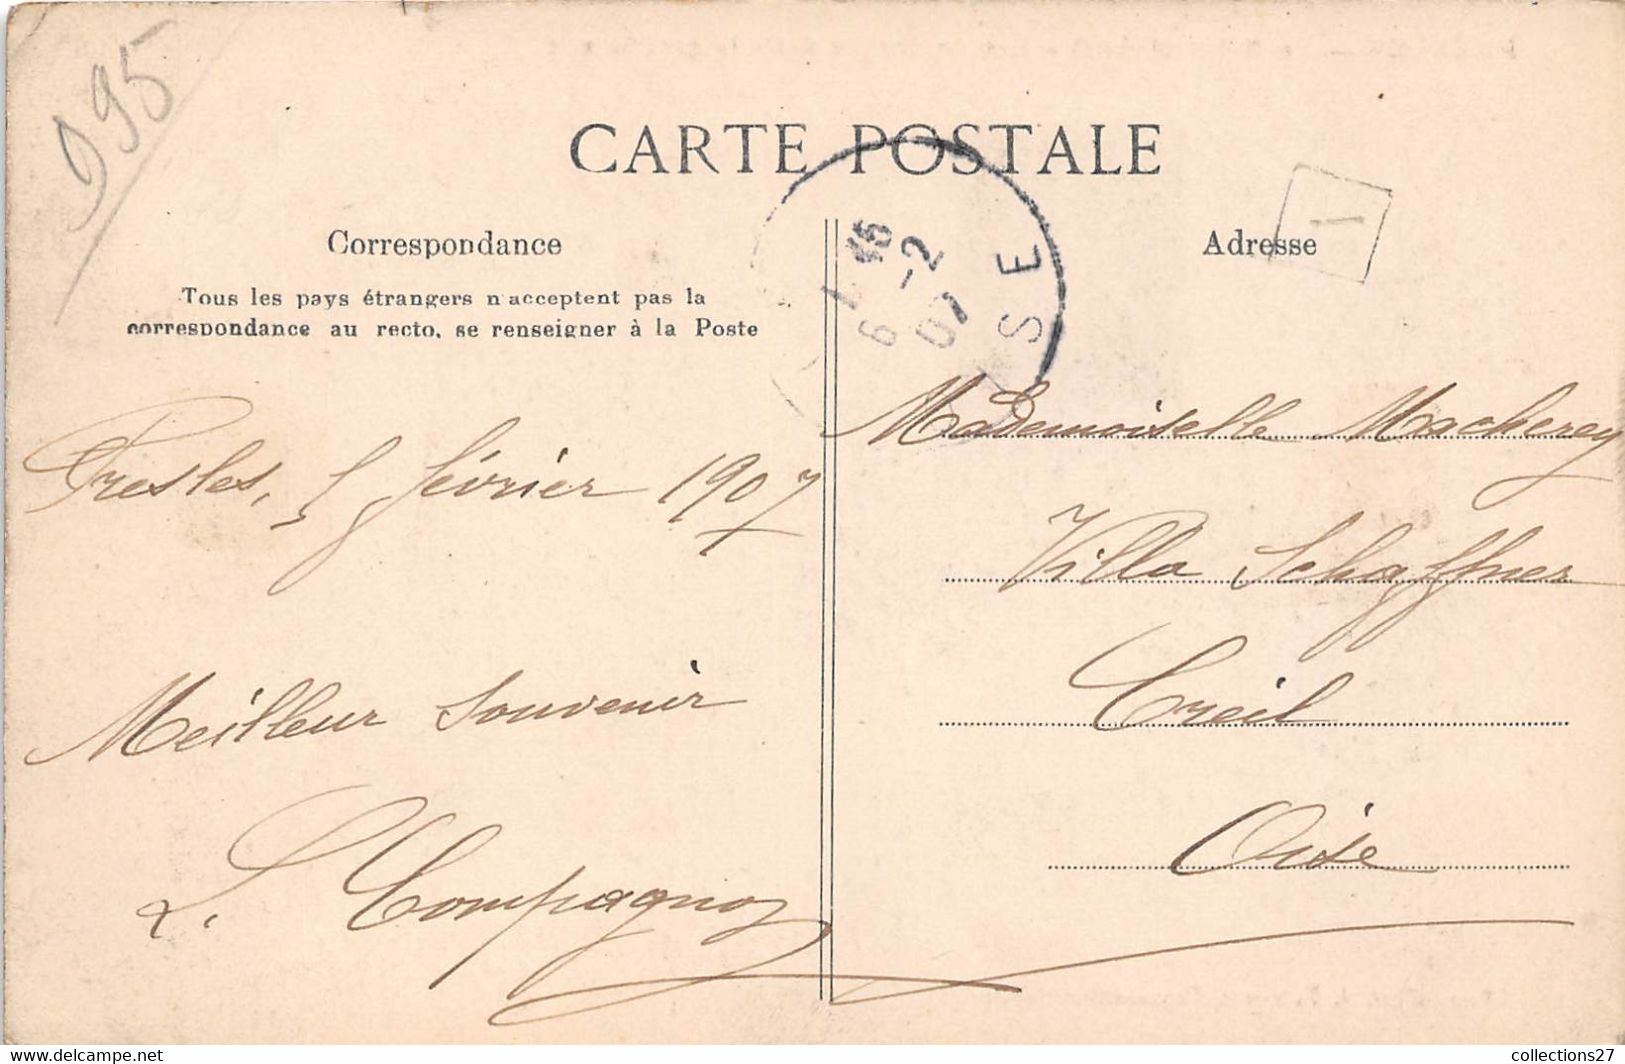 995
CARTE POSTALE
Correspondance
Tous les pays étrangers n'acceptent pas la
correspondance au recto, se renseigner à la Poste
Presles, 5 février 1907
Meilleur souvenir
L. Compagnon
Adresse
Mademoiselle Macherey
Villa Schaffner
Creil
Oise
6 -2
07
ISE
1
https://www.delcampe.net
collections27